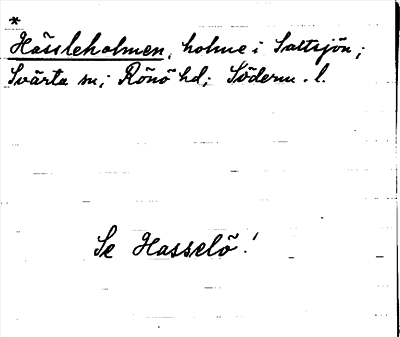 *
Hässleholmen, holme i Saltsjön;
Svärta sn; Rönö hd; Söderm. l.
Se Hasselö!